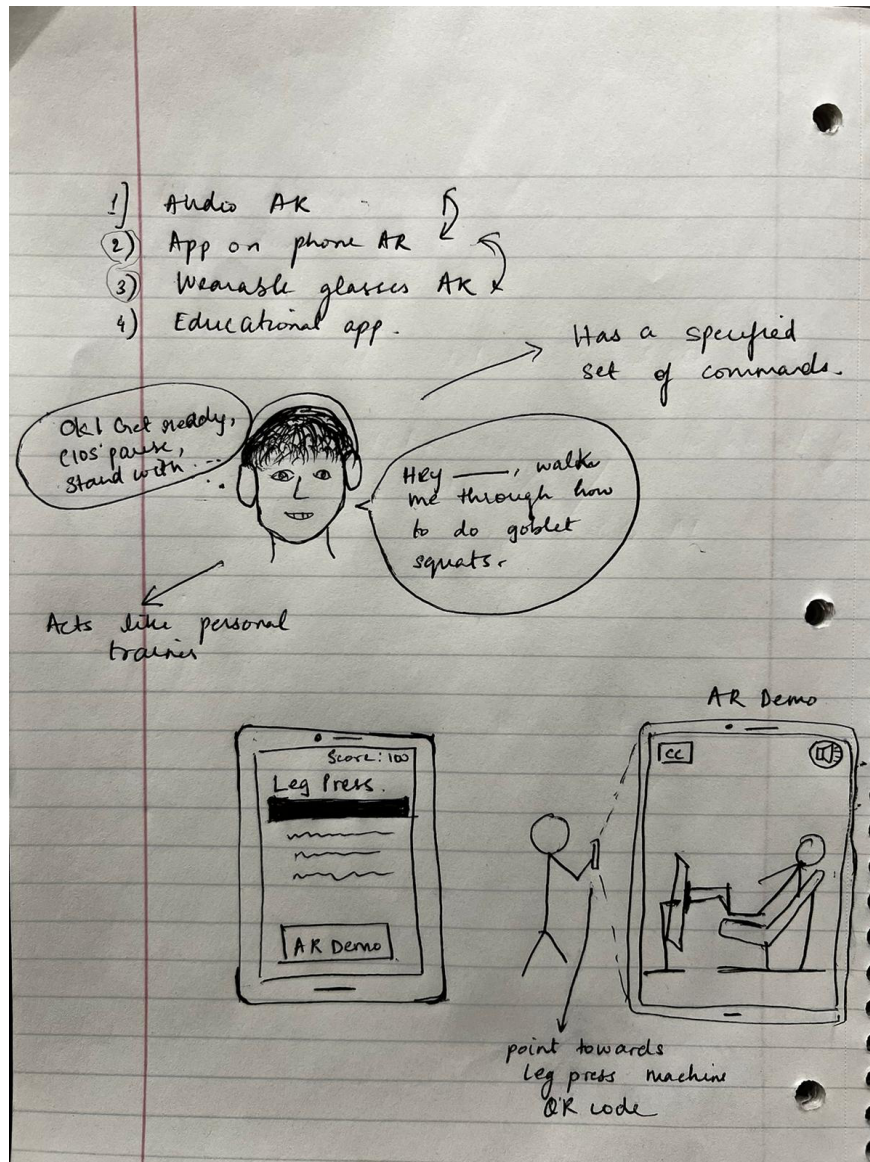 1] Audio AR
2) App on phone AR
3) Wearable glasses AR
4) Educational app.
Has a specified
set of commands.
Ok! Get ready,
pause,
stand with ...
Hey ____, walk
me through how
to do goblet
squats.
Acts like personal
trainer
Score: 100
Leg Press.
AR Demo
AR Demo
CC
point towards
leg press machine
QR code